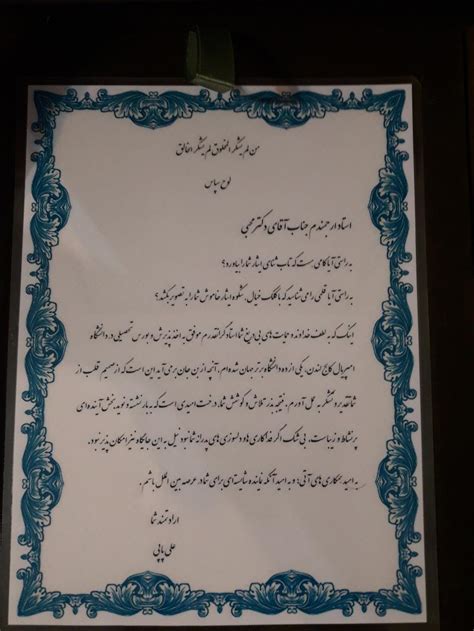 من لم یشکر المخلوق لم یشکر الخالق
لوح سپاس
استاد ارجمندم جناب آقای دکتر محبی
به راستی آیا کلامی هست که تاب ثنای ایثار شما را بیاورد؟
به راستی آیا قلمی را می شناسید که با کلک خیال، شکوه ایثار خاموش شما را به تصویر بکشد؟
اینک که به لطف خداوند و حمایت های بی دریغ شما استاد گرانقدرم موفق به اخذ پذیرش و بورس تحصیلی در دانشگاه
امپریال کالج لندن، یکی از ده دانشگاه برتر جهان شده ام، آنچه از من جان بر می آید این است که از صمیم قلب از
شما تقدیر و تشکر به عمل آورم. نتیجه بذر تلاش و کوشش شما، درخت امیدی است که به بار نشسته و نوید بخش آینده ای
پر نشاط و زیباست. بی شک اگر فداکاری ها و دلسوزی های پدرانه شما نبود نیل به این جایگاه نیز امکان پذیر نبود.
به امید همکاری های آتی؛ و به امید آنکه نماینده شایسته ای برای شما در عرصه بین الملل باشم.
ارادتمند شما
علی پاپی